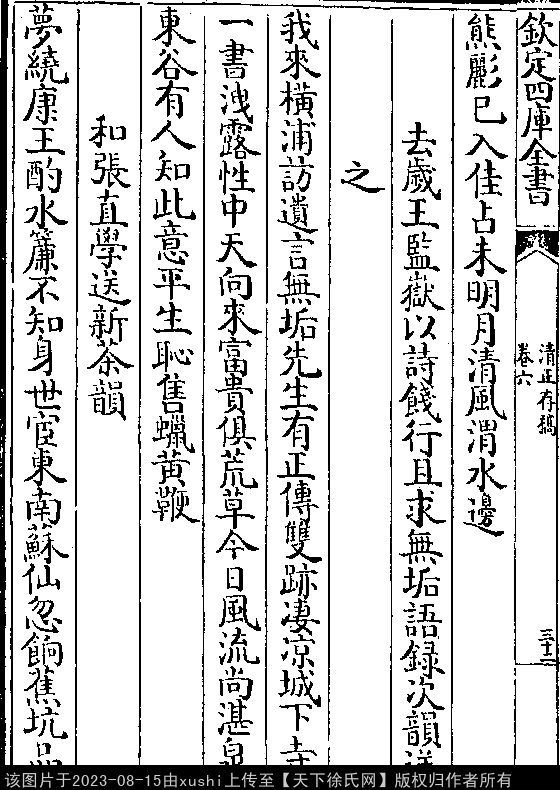 欽定四庫全書
清正存稿
卷六
三十二
熊羆已入佳占未明月清風渭水邊
去歲王監嶽以詩餞行且求無垢語録次韻送
之
我來橫浦訪遺言無垢先生有正傳雙跡凄凉城下寺
一書洩露性中天向來富貴俱荒草今日風流尚湛泉
東谷有人知此意平生恥售蠟黄鞭
和張直學送新茶韻
夢繞康王酌水簾不知身世宦東南蘇仙忽餉蕉坑品
该图片于2023-08-15由xushi上传至【天下徐氏网】版权归作者所有